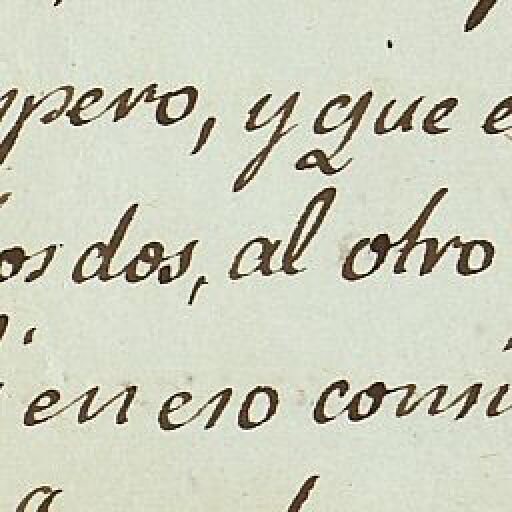 pero, y que
os dos, al otro
en eso consi